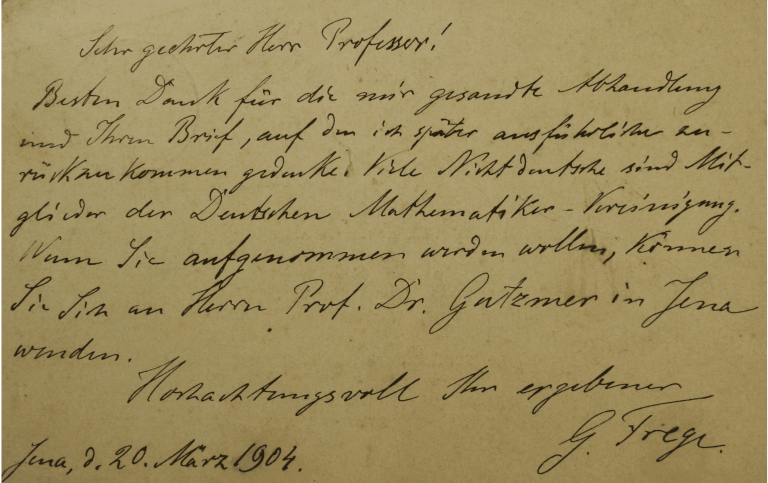 Sehr geehrter Herr Professor!
Besten Dank für die mir gesandte Abhandlung
und Ihren Brief, auf den ich später ausführlicher zu-
rückzukommen gedenke. Viele Nichtdeutsche sind Mit-
glieder der Deutschen Mathematiker-Vereinigung.
Wenn Sie aufgenommen werden wollen, können
Sie Sich an Herrn Prof. Dr. Gutzmer in Jena
wenden.
Hochachtungsvoll Ihr ergebener
G. Frege.
Jena, d. 20. März 1904.